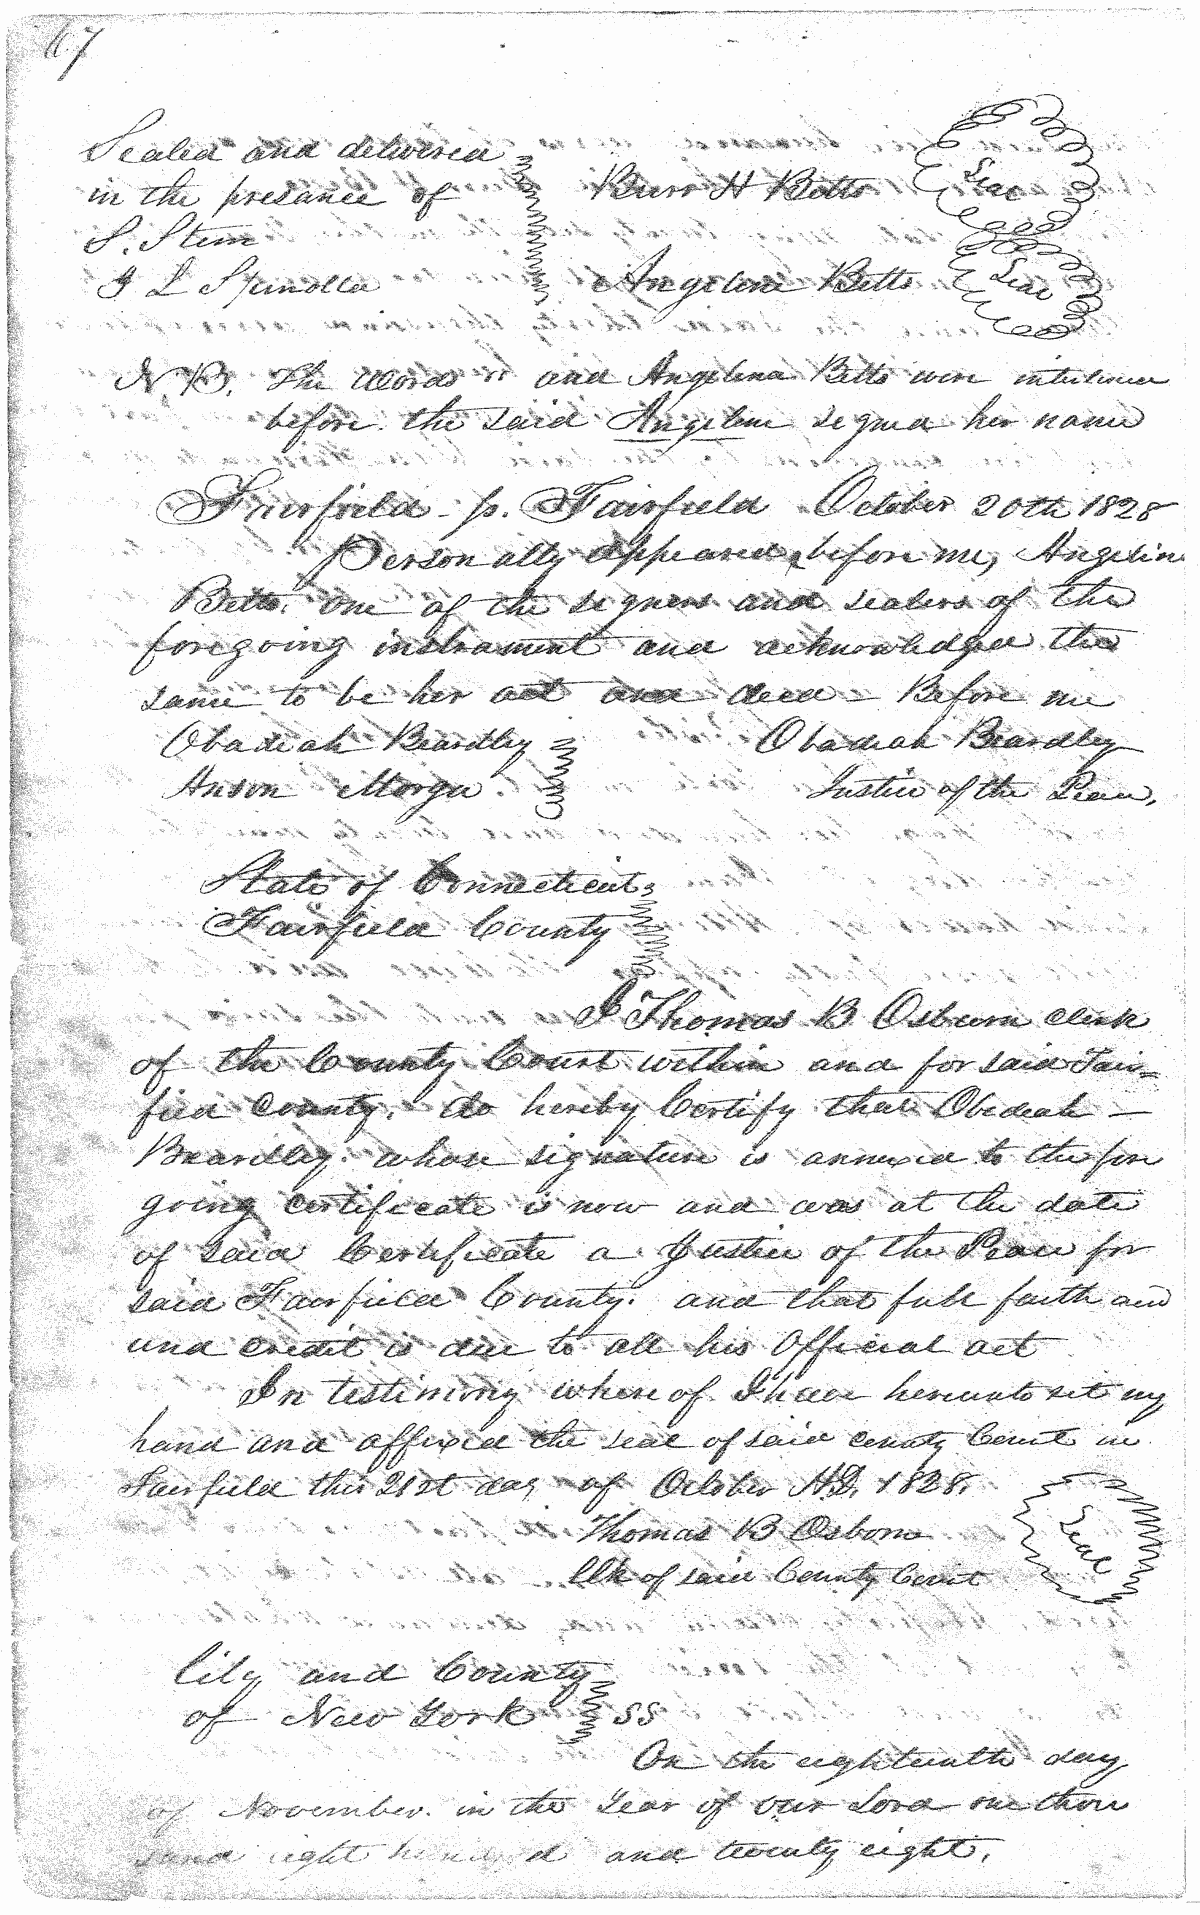 67
Sealed and delivered
in the presance of
S. Stem
L
Burr H Betts
Seal
Angeline Betts
Seal
N.B. The Words and Angelina Betts were interlined
before the said Angeline signed her name
Fairfield Fairfield October 20th 1828
Personally appeared before me, Angeline
Betts, one of the signers and sealers of the
foregoing instrument and acknowledged the
same to be her act and deed – Before me
Obadiah Beardley
Anson Morgan
Obadiah Beardley
Justice of the Peace,
State of Connecticut
Fairfield County
I Thomas B Osborn Clerk
of the County Court within and for said Fair=
field County, do hereby Certify that Obediah –
Beardley whose signature is annexed to the fore
going certificate is now and was at the date
of said Certificate a Justice of the Peace for
said Fairfield County. and that full faith and
and credit is due to all his Official act
In testimony where of I have hereunto set my
hand and affixed the seal of said County Court in
Fairfield this 21st day of October A.D. 1828.
Thomas B Osborn
Clk of said County Court
Seal
City and County
of New York SS
On the eighteenth day
of November in the Year of our Lord one thou
sand eight hundred and twenty eight,